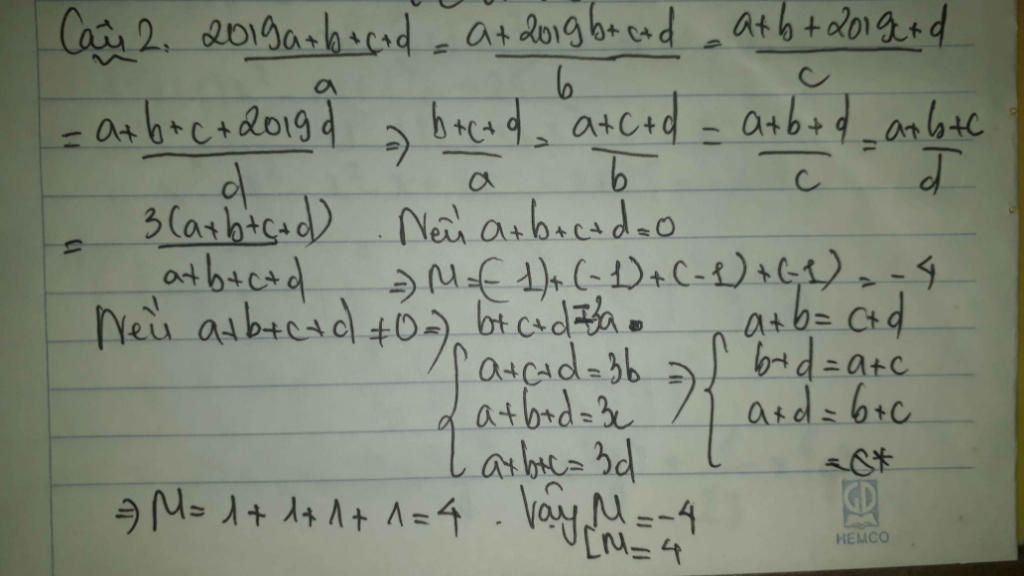 Câu 2. (2019a+b+c+d)/a = (a+2019b+c+d)/b = (a+b+2019c+d)/c
= (a+b+c+2019d)/d ⇒ (b+c+d)/a = (a+c+d)/b = (a+b+d)/c = (a+b+c)/d
= 3(a+b+c+d)/(a+b+c+d) . Nếu a+b+c+d=0
⇒ M = (-1)+(-1)+(-1)+(-1) = -4
Nếu a+b+c+d ≠0 ⇒ { b+c+d=3a a+b = c+d
a+c+d = 3b ⇒ { b+d = a+c
a+b+d = 3c a+d = b+c
a+b+c = 3d
⇒ M = 1+1+1+1 = 4 . Vậy [ M = -4
M = 4
HEMCO